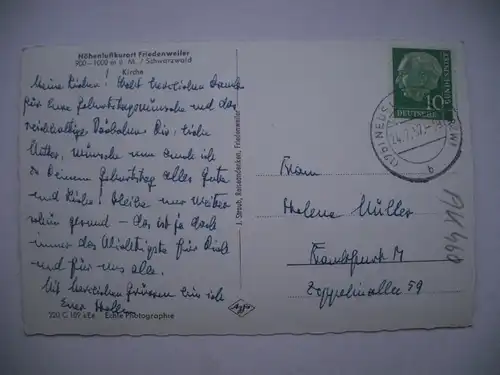 Höhenluftkurort Friedenweiler
900–1000 m ü. M. / Schwarzwald
Kirche
Meine Lieben! Habt herzlichen Dank
für Eure Geburtstagswünsche und das
reichhaltige Dir, liebe
Mutter, wünsche nun auch ich
zu Deinem Geburtstag alles Gute
und Liebe! Bleibe nur weiter
gesund – das ist ja doch
immer das Wichtigste für Dich
und für uns alle.
Mit herzlichen Grüssen bin ich
Eure
220 G 189 Echte Photographie
J. Straub, Reiseandenken, Friedenweiler
Agfa
10
DEUTSCHE
BUNDESPOST
(17b) NEUS
24.2.57
b
AK460
Frau
Helene Müller
Frankfurt M
Zeppelinallee 59